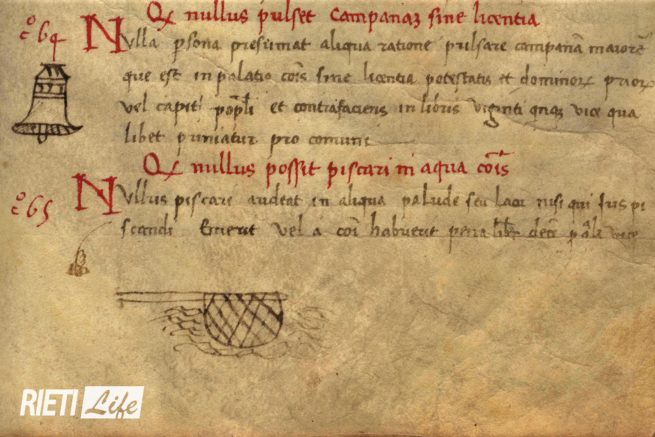 Qꝫ nullus pulset Campanaꝫ sine licentia
c̊ 64
Nulla psona presumat aliqua ratione pulsare campanā maiorē
que est in palatio cōis sine licentia potestatis et dominoꝝ prioꝝ
vel capiti popli et contrafaciens in libris viginti qnqꝫ vice qua
libet puniatur pro comuni
Qꝫ nullus possit piscari in aqua cōis
c̊ 65
Nullus piscari audeat in aliqua palude seu lacu nisi qui ius pi
scandi Emerit vel a cōi habuerit pena libr decē vice
RIETI Life